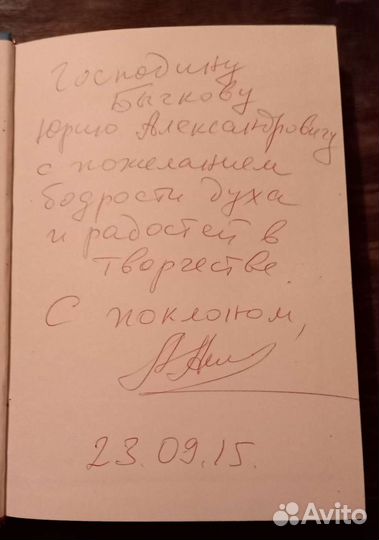 Господину
Бычкову
Юрию Александровичу
с пожеланием
бодрости духа
и радостей в
творчестве.
С поклоном,
23.09.15.
Avito